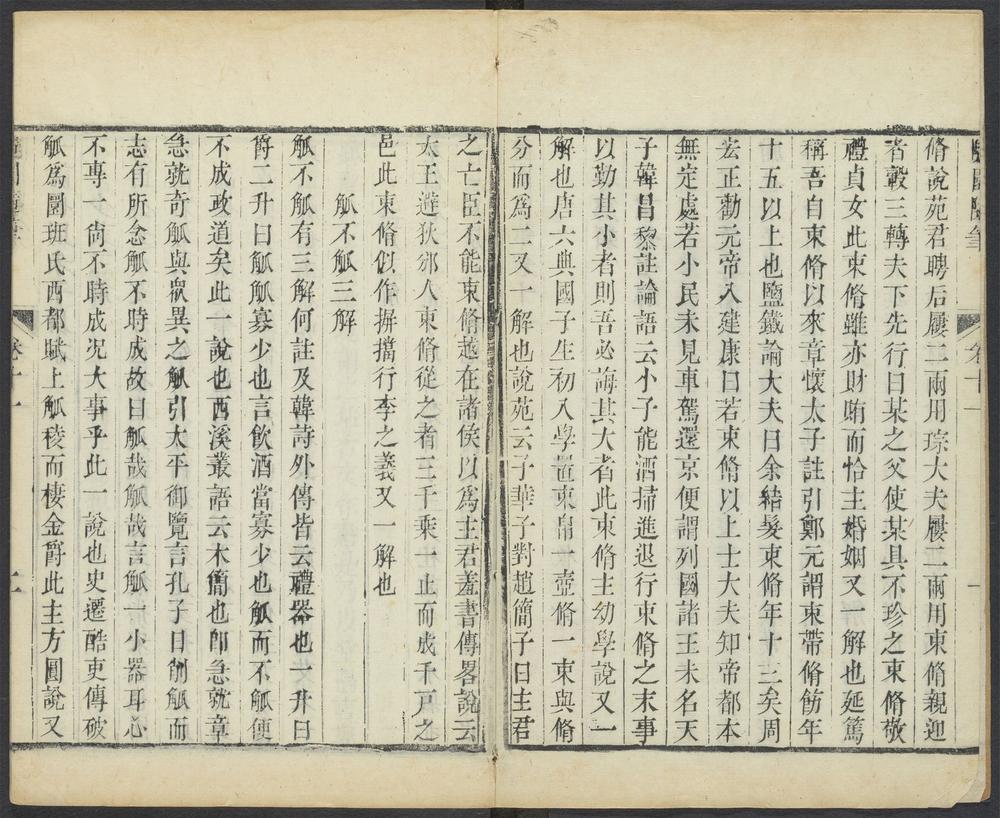 脩說苑君聘后屨二兩用琮大夫屨二兩用東脩親迎
者轂三轉夫下先行曰某之父使某具不珍之東脩敬
禮貞女此束脩雖亦財賄而恰主婚姻又一解也延篤
稱吾自束脩以來章懷太子註引鄭元謂束帶脩飭年
十五以上也鹽鐵論大夫曰余結髮束脩年十三矣周
宏正勸元帝入建康曰若束脩以上士大夫知帝都本
無定處若小民未見車駕還京便謂列國諸王未名天
子韓昌黎註論語云小子能酒掃進退行束脩之末事
以勤其小者則吾必誨其大者此東脩主幼學說又一
解也唐六典國子生初入學置東帛一壺脩一束與脩
分而爲二又一解也說苑云子華子對趙簡子曰主君
之亡臣不能東脩越在諸侯以爲主君羞書傳畧說云
太王避狄邠人東脩從之者三千乘一止而成千戸之
邑此東脩似作摒擋行李之義又一解也
觚不觚三解
觚不觚有三解何註及韓詩外傳皆云禮器也一升曰
爵二升曰觚觚寡少也言飲酒當寡少也觚而不觚便
不成政道矣此一說也西溪叢語云木簡也卽急就章
急就奇觚與衆異之觚引太平御覽言孔子曰削觚而
志有所念觚不時成故曰觚哉觚哉言觚一小器耳心
不專一尙不時成况大事乎此一說也史遷酷吏傳破
觚爲圜班氏西都賦上觚稜而棲金爵此主方圓說又